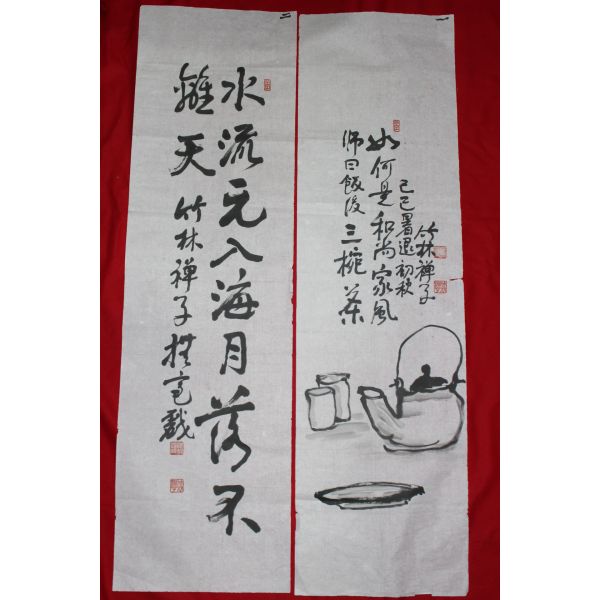 一
如何是和尚家風
師曰飯後三椀茶
己巳暑退初秋
竹林禪子
二
水流元入海月落不
離天 竹林禪子 戲